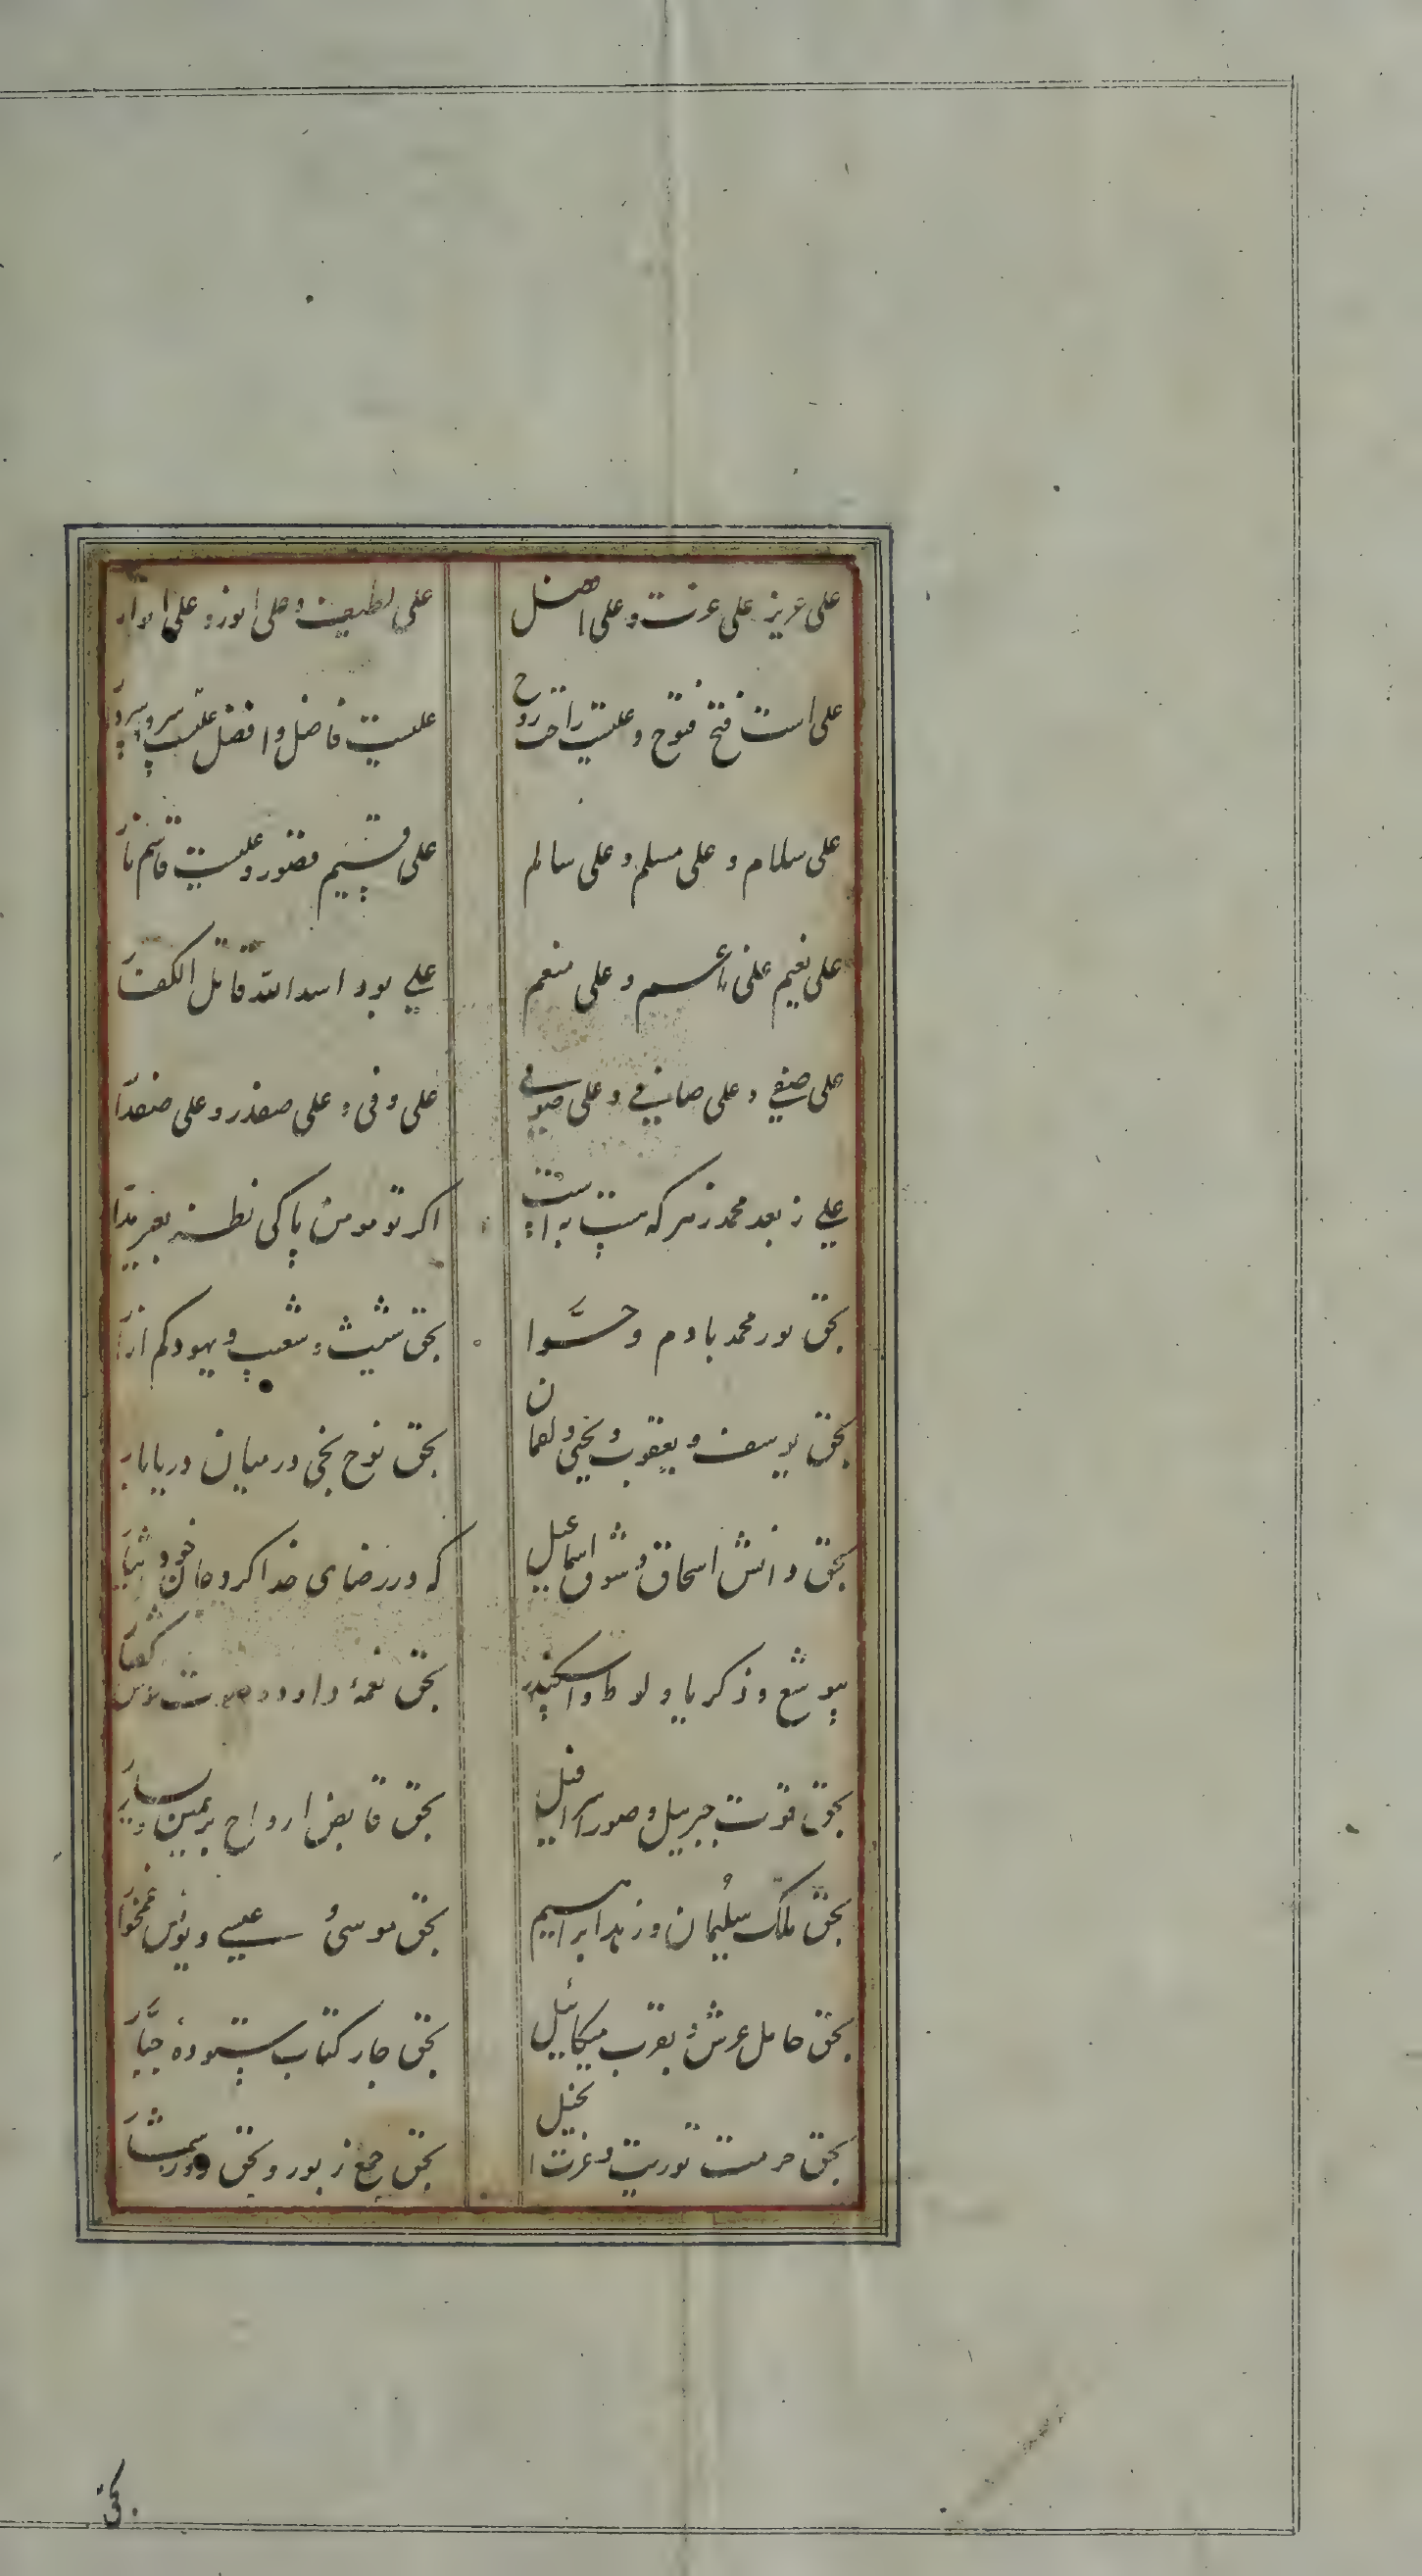 علی عزیز علی عزت و علی افضل
علی لطیف و علی انور و علی انوار
علی است فتح فتوح و علیست راحت روح
علیست فاضل و افضل علیست سر و سردار
علی سلام و علی مسلم و علی سالم
علی قسیم قصور و علیست قاسم نار
علی نعیم علی ناعم و علی منعم
علی بود اسد الله قاتل الکفار
علی صفی و علی صافی و علی صوفی
علی وفی و علی صفدر و علی صفدار
علی ز بعد محمد ز هر که هست به است
اگر تو مومن پاکی نظر بغیر مدار
بحق نور محمد بادم و حوا
بحق شیث و شعیب و بهود کم ازار
بحق یوسف و یعقوب و یحیی و لقمان
بحق نوح نجی در میان دریابار
بحق دانش اسحاق و شوق اسماعیل
که در رضای خدا کرد جان خود ایثار
بیوشع و ذکریا و لوط و اسکندر
بحق نغمه داود و صوت گفتار
بحق قوت جبریل و صور اسرافیل
بحق قابض ارواح بر یمین و یسار
بحق ملک سلیمان و زهد ابراهیم
بحق موسی و عیسی و یونس غمخوار
بحق حامل عرش و بقرب میکائیل
بحق چار کتاب ستوده جبار
بحق حرمت توریت و عزت انجیل
بحق جمع زبور و بحق روز شمار
بحق